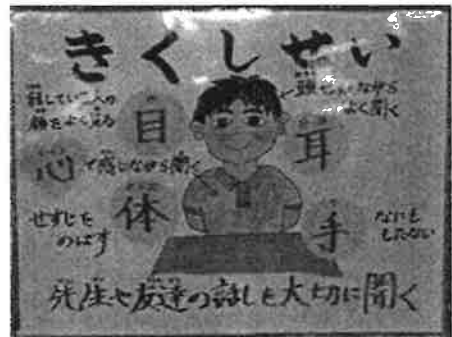 きくしせい
話している人の
顔をよく見る
目
耳
よく聞く
心で感じながら聞く
体
せすじを
のばす
手
なにも
もたない
先生や友達の話しを大切に聞く